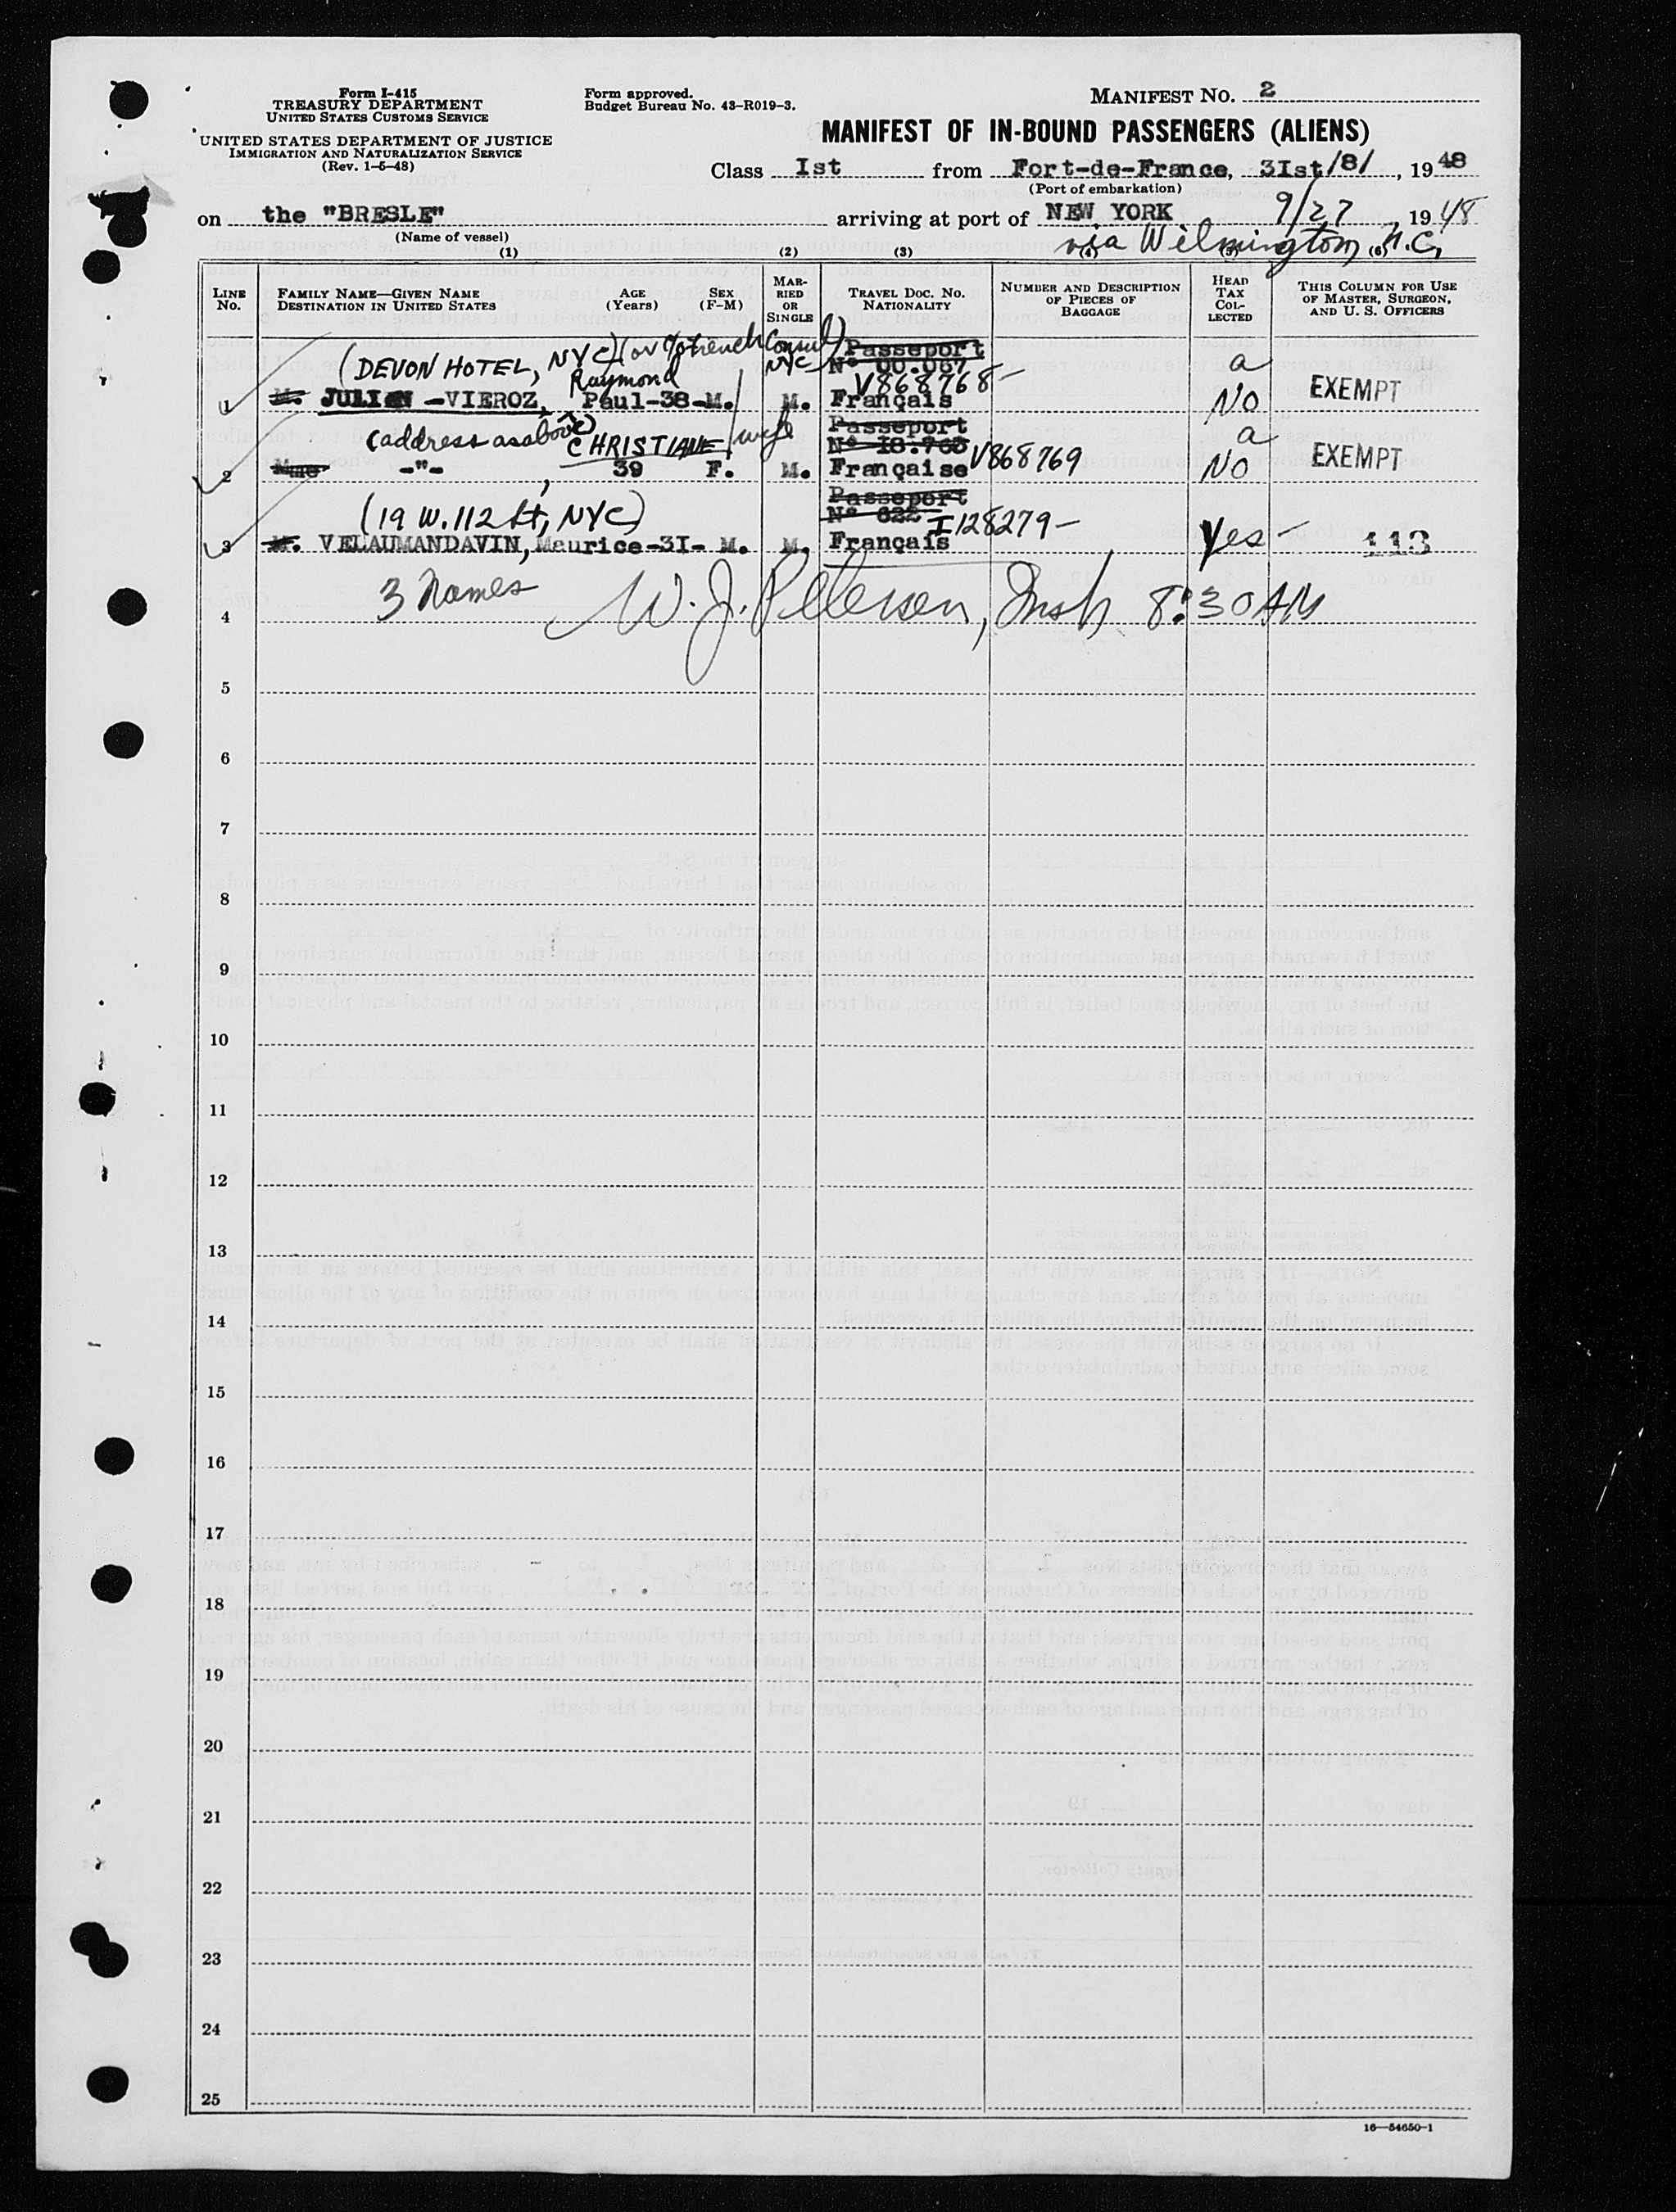 Form I-415
TREASURY DEPARTMENT
UNITED STATES CUSTOMS SERVICE
UNITED STATES DEPARTMENT OF JUSTICE
IMMIGRATION AND NATURALIZATION SERVICE
(Rev. 1-5-48)
Form approved.
Budget Bureau No. 43-R019-3.
MANIFEST NO. 2
MANIFEST OF IN-BOUND PASSENGERS (ALIENS)
Class Ist from Fort-de-France, 3Ist/8/, 1948
(Port of embarkation)
on the "BRESLE" arriving at port of NEW YORK 9/27, 1948
(Name of vessel) via Wilmington, N.C,
(1) (2) (3) (4) (5) (6)
LINE NO.
FAMILY NAME—GIVEN NAME
DESTINATION IN UNITED STATES
AGE
(Years)
SEX
(F-M)
MARRIED OR SINGLE
TRAVEL DOC. NO.
NATIONALITY
NUMBER AND DESCRIPTION
OF PIECES OF
BAGGAGE
HEAD
TAX
COLLECTED
THIS COLUMN FOR USE
OF MASTER, SURGEON,
AND U. S. OFFICERS
(DEVON HOTEL, NYC) (or % French Consul) NYC Passeport
Nº 00.067 a
Raymond V868768-
1 M. JULIEN -VIEROZ, Paul-38-M. M. Français No EXEMPT
(address as above) CHRISTIANE / wife Passeport
Nº 18.760 a
2 Mme -"- , 39 F. M. Française V868769 No EXEMPT
Passeport
(19 W. 112 St, NYC) Nº 622 I128279-
3 M. VELAUMANDAVIN, Maurice-3I- M. M. Français Yes- 113
3 Names
4 W. J. Petersen, Insp 8:30 AM
5
6
7
8
9
10
11
12
13
14
15
16
17
18
19
20
21
22
23
24
25
16—54650-1